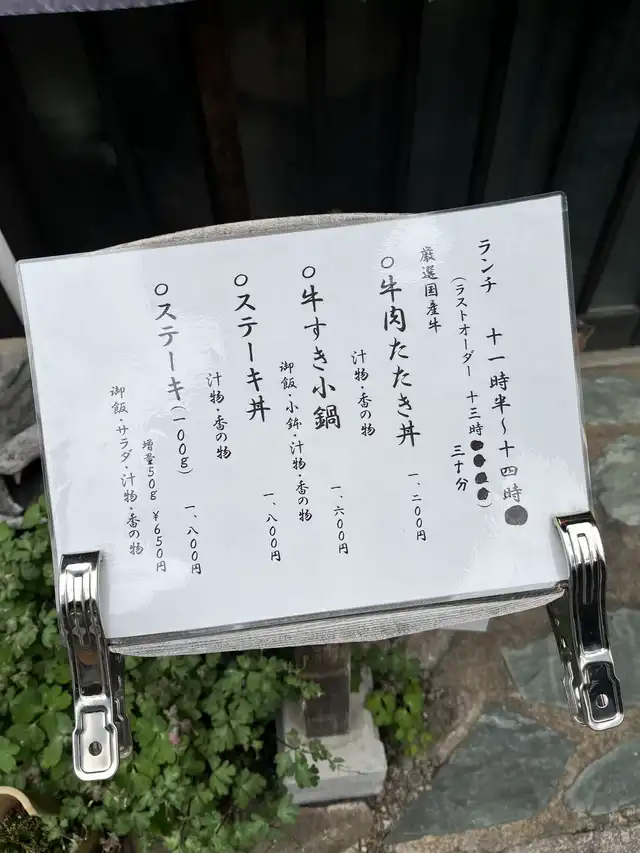 ランチ 十一時半～十四時
(ラストオーダー 十三時)
三十分
厳選国産牛
○牛肉たたき丼
一、二〇〇円
汁物・香の物
○牛すき小鍋
一、六〇〇円
御飯・小鉢・汁物・香の物
○ステーキ丼
一、八〇〇円
汁物・香の物
○ステーキ(一〇〇g)
一、八〇〇円
増量50g ￥650円
御飯・サラダ・汁物・香の物